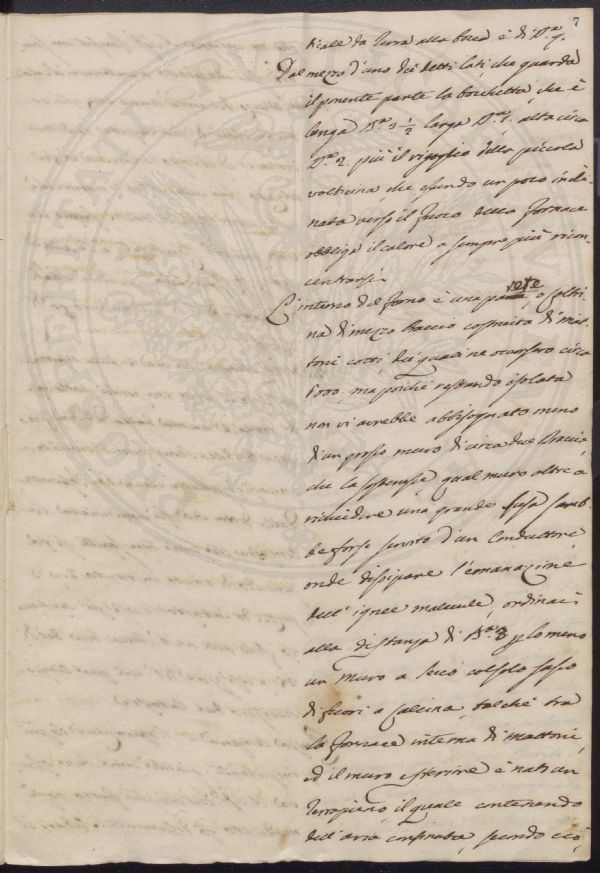 7
ticale da Terra alla bocca è di B.a 4.
Dal mezzo d'uno dei detti lati, che guarda
il ponente parte la bocchetta, che è
longa B.a 3 1/2 larga B.a 1. alta circa
B.a 2. più il rigoglio della piccola
volticina, che essendo un poco incli-
nata verso il fuoco della fornace
obbliga il calore a sempre più ricon-
centrarsi.
L'interno del forno è una parete, o foltri-
na di mezzo braccio costruita di mat-
toni cotti, dei quali ne occorsero circa
6000, ma poichè restando isolata
non vi avrebbe abbisognato meno
di un grosso muro di circa due braccia,
che la sostenesse, qual muro oltre a
richiedere una grande spesa sareb-
be forse servito d'un Conduttore,
onde dissipare l'emanazione
dell'ignee molecule, ordinai
alla distanza di B.a 3 p lo meno
un muro a secco col solo sasso
di fuori a Calcina, talchè tra
la fornace interna di mattoni,
ed il muro esteriore è nato un
Terrapieno, il quale contenendo
dell'aria confinata, secondo ciò,